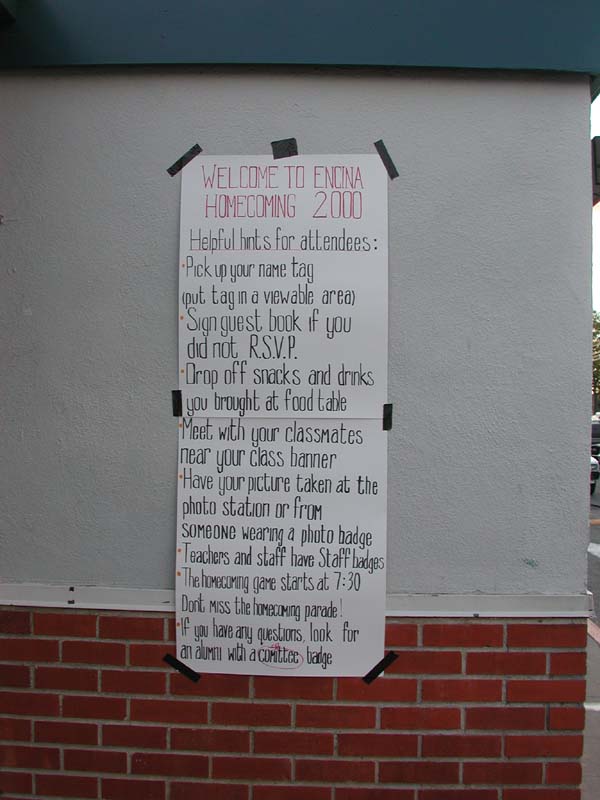 WELCOME TO ENCINA
HOMECOMING 2000
Helpful hints for attendees:
•Pick up your name tag
(put tag in a viewable area)
•Sign guest book if you
did not R.S.V.P.
•Drop off snacks and drinks
you brought at food table
•Meet with your classmates
near your class banner
•Have your picture taken at the
photo station or from
someone wearing a photo badge
•Teachers and staff have Staff badges
•The homecoming game starts at 7:30
Dont miss the homecoming parade!
•If you have any questions, look for
an alumni with a comittee badge